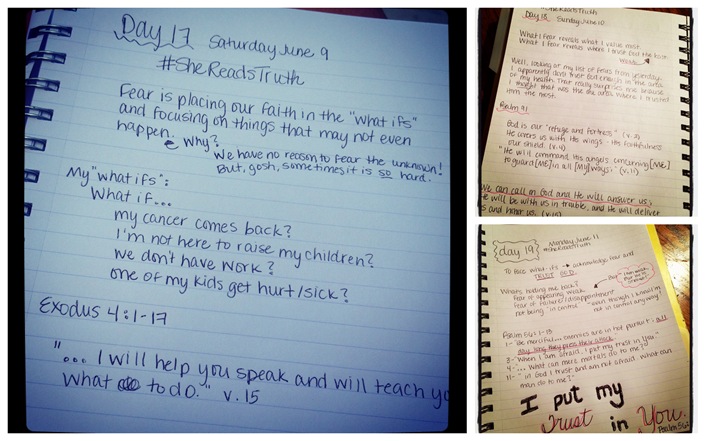 Day 17 Saturday June 9
#SheReadsTruth
Fear is placing our faith in the "what ifs"
and focusing on things that may not even
happen.
Why?
We have no reason to fear the unknown!
But, gosh, sometimes it is so hard.
My "what ifs":
What if...
my cancer comes back?
I'm not here to raise my children?
we don't have work?
one of my kids get hurt/sick?
Exodus 4:1-17
"... I will help you speak and will teach yo
what to do." v. 15
#SheReadsTruth
Day 18 Sunday June 10
What I fear reveals what I value most.
What I fear reveals where I trust God the least.
Well, looking at my list of fears from yesterday,
I apparently don't trust God enough in the area
of my health. That really surprises me because
I thought that was the one area where I trusted
Him the most.
Psalm 91
God is our "refuge and fortress" (v. 2)
He covers us with His wings - His faithfulness
our shield. (v. 4)
"He will command His angels concerning [ME]
to guard [ME] in all [MY] ways." (v. 11)
We can call on God and He will answer us,
He will be with us in trouble, and He will deliver
s and honor us. (v. 15)
day 19 Monday June 11
#SheReadsTruth
To face what-ifs → acknowledge fear and
TRUST GOD.
What's holding me back?
Fear of appearing weak
Fear of failure/disappointment
not being "in control" "even though I know I'm
not in control anyway!
Psalm 56:1-18
1- "Be merciful... enemies are in hot pursuit; all
day long they press their attack.
3- "When I am afraid, I put my trust in you."
4- "... What can mere mortals do to me?"
11- "in God I trust and am not afraid. What can
man do to me?"
I put my
Trust in You.
Psalm 56:3